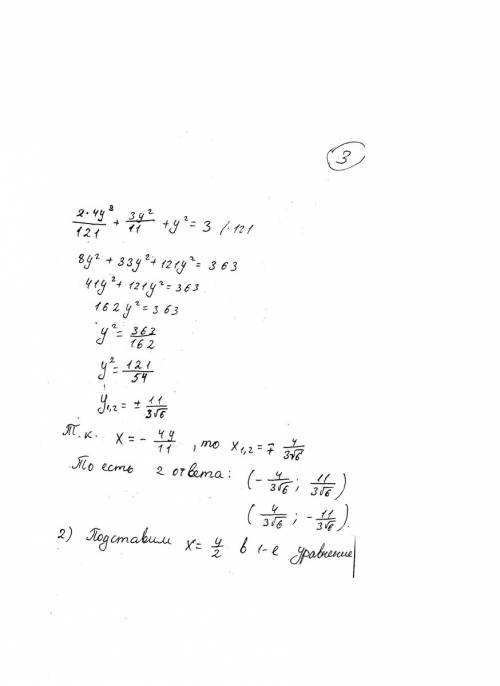 3
2·4y² / 121 + 3y² / 11 + y² = 3 /·121
8y² + 33y² + 121y² = 363
41y² + 121y² = 363
162y² = 363
y² = 363/162
y² = 121/54
y₁,₂ = ± 11/3√6
Т.к. x = - 4y/11, то x₁,₂ = ∓ 4/3√6
То есть 2 ответа: (- 4/3√6 ; 11/3√6)
(4/3√6 ; - 11/3√6).
2) Подставим x = y/2 в 1-е уравнение